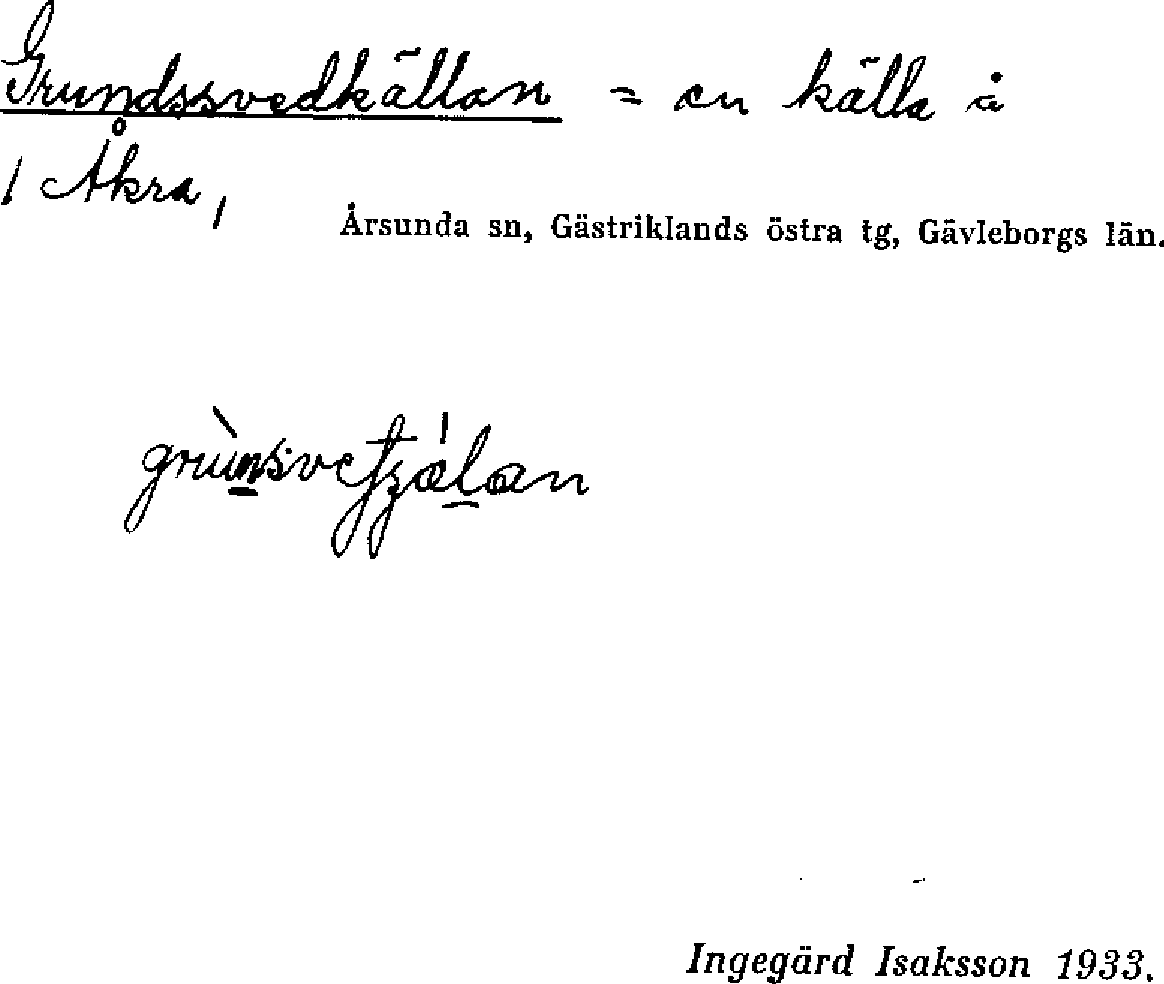 Grundssvedkällan = en källa å
/ Åkra /
Årsunda sn, Gästriklands östra tg, Gävleborgs län.
Ingegärd Isaksson 1933.